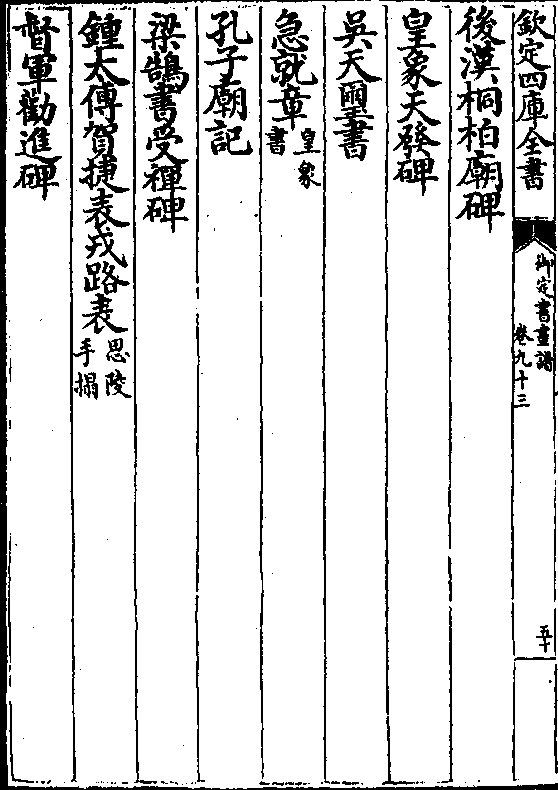 欽定四庫全書
御定書畫譜
卷九十三
五十
後漢桐柏廟碑
皇象天發碑
吳天璽書
急就章皇象書
孔子廟記
梁鵠書受禪碑
鍾太傅賀捷表戎路表思陵手搨
督軍勸進碑